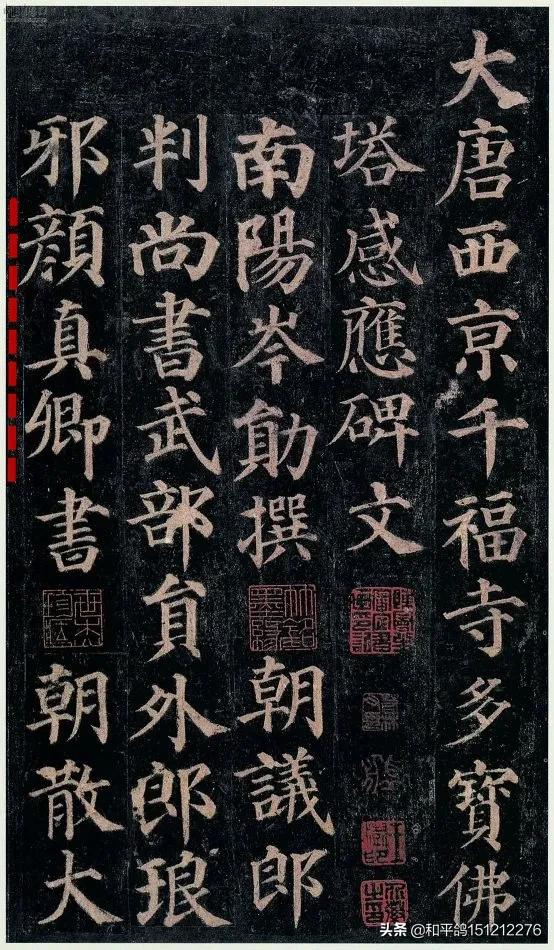 大唐西京千福寺多寳佛
塔感應碑文
南陽岑勛撰 朝議郎
判尚書武部負外郎琅
邪顔真卿書 朝散大
头条 @和平鸽151212276